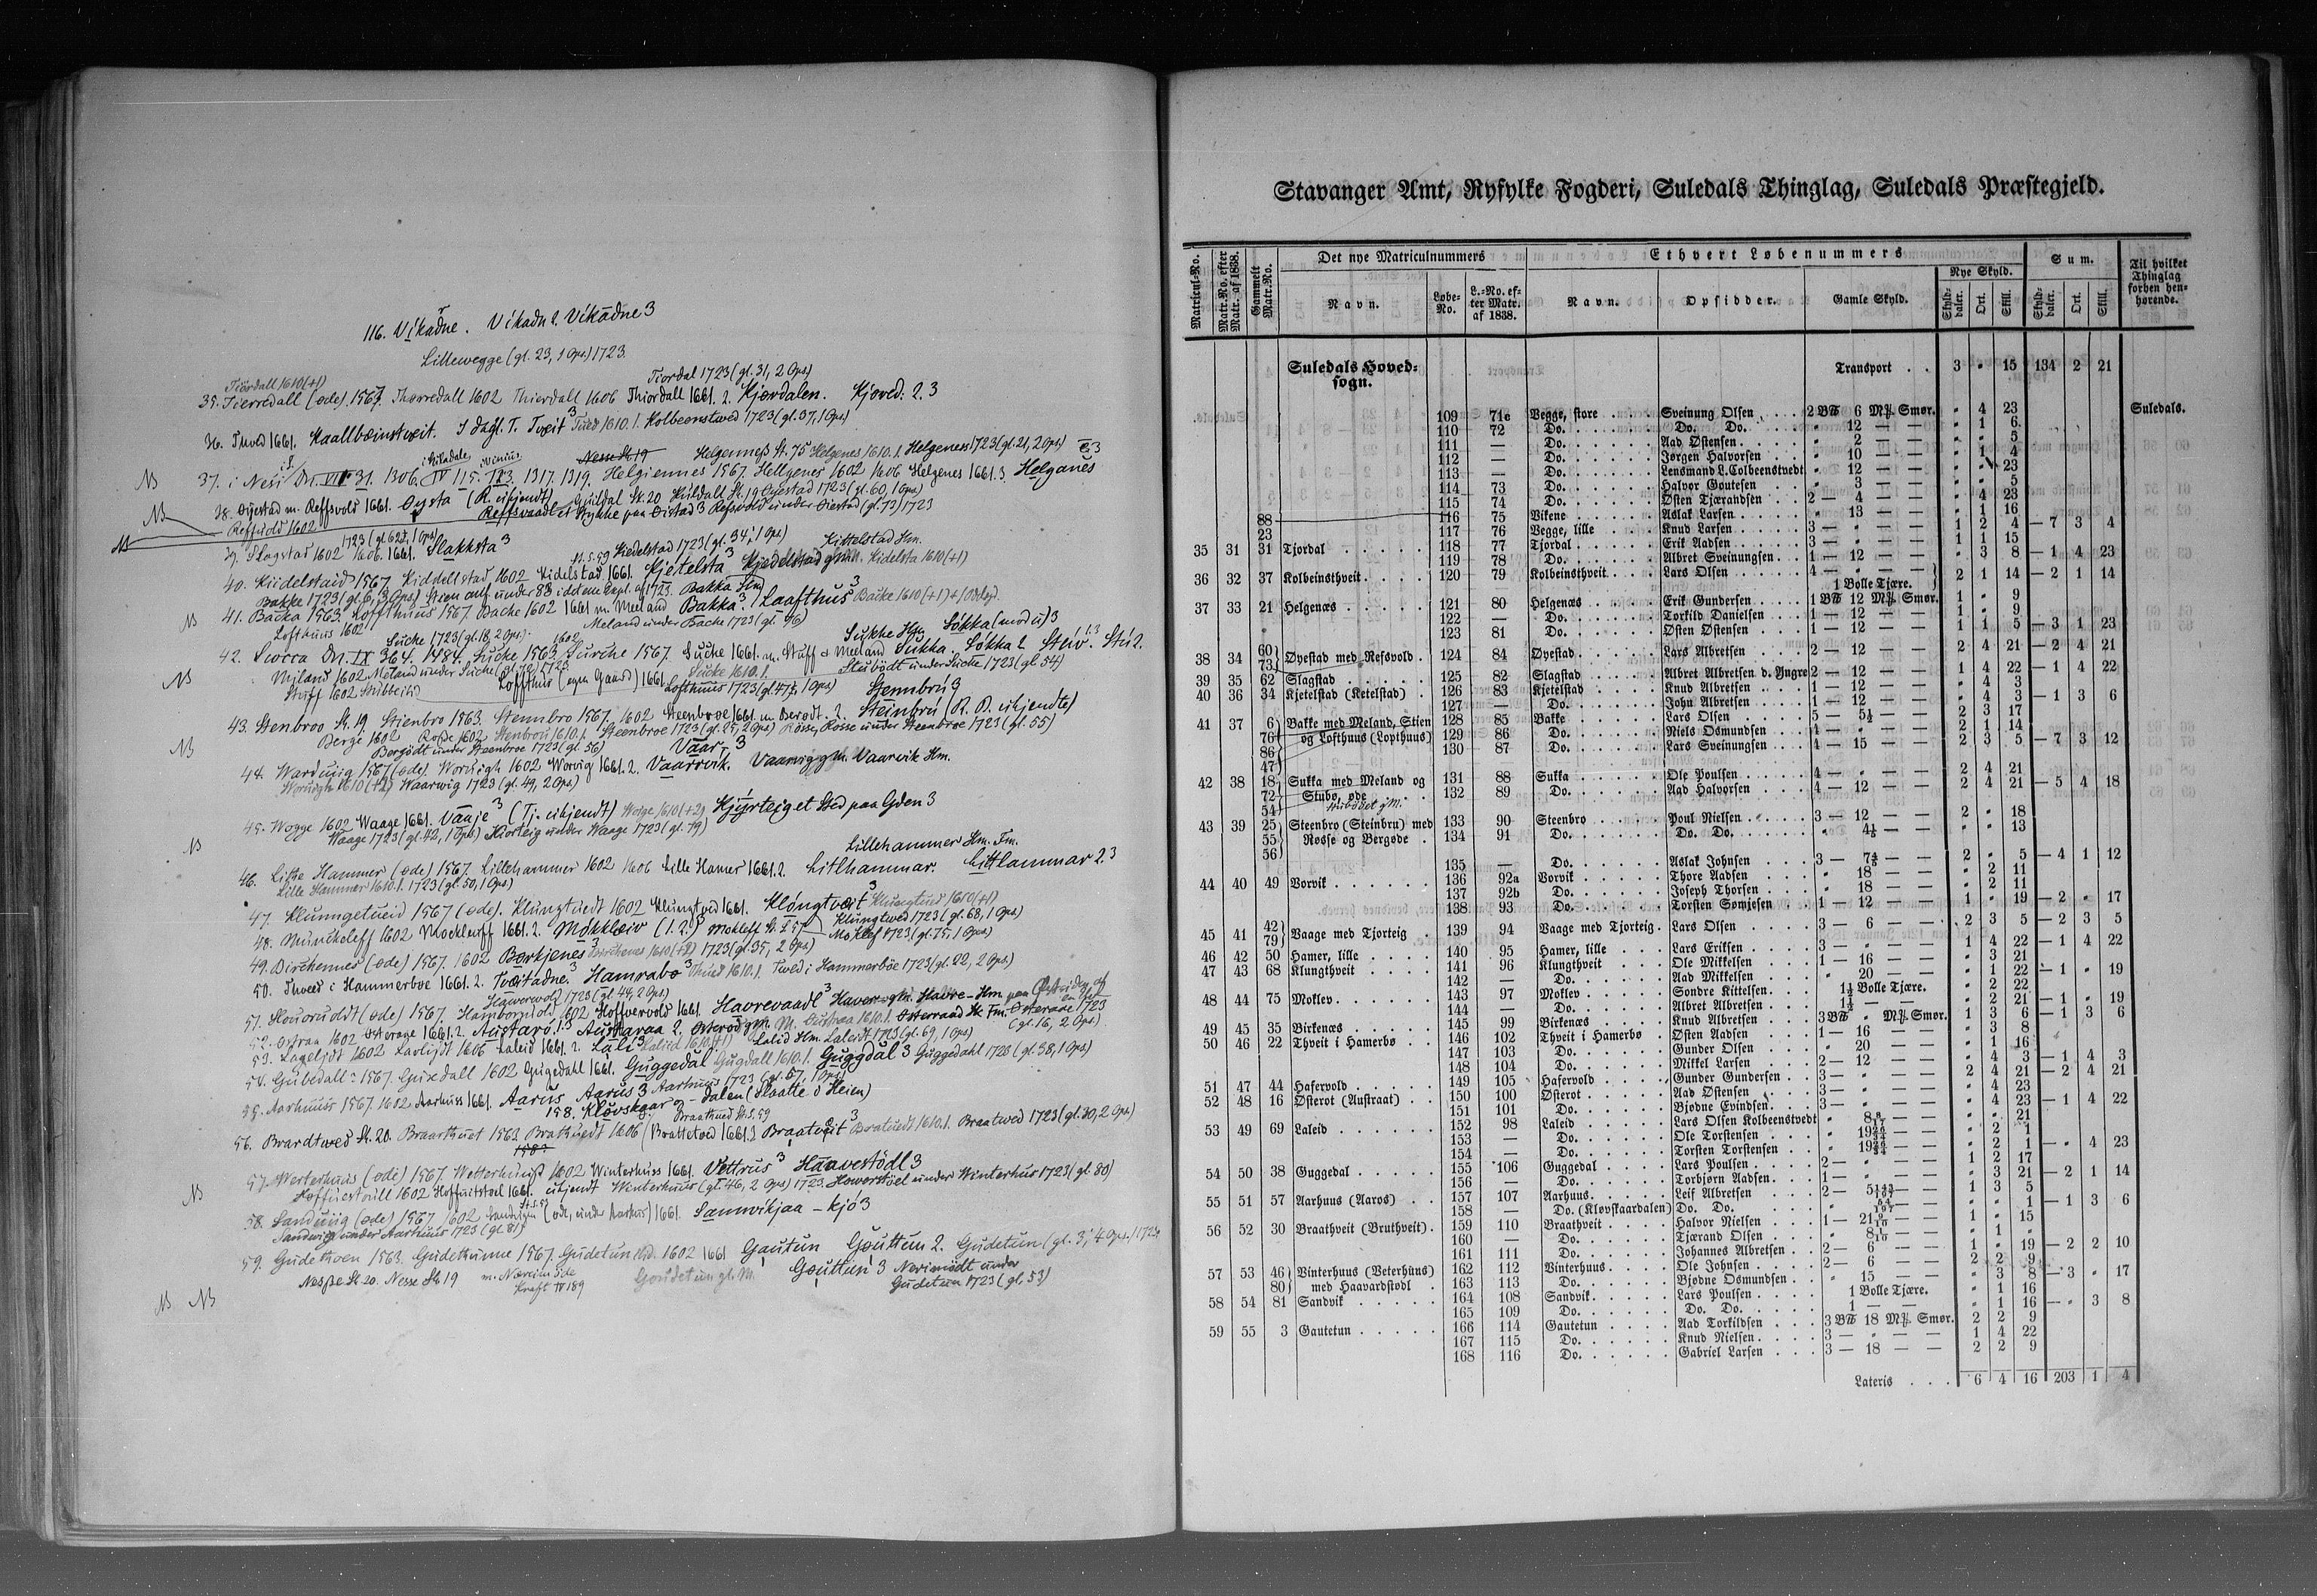 116. Vikadne. Vikadn 2. Vikadne 3
Lillewegge (gl. 23, 1 Ops.) 1723.
Tiordall 1610 (+1) Tiordal 1723 (gl. 31, 2 Ops)
35. Tierredall (øde) 1567. Thorredall 1602 Thierdall 1606 Thiordall 1661. 2. Kjørdalen. Kjoved: 2. 3
36. Thved 1661. Kaallbæinstvæit. I dagl. T. Tvæit 3 Tued 1610. 1. Kolbeenstwed 1723 (gl. 37, 1 Ops)
Nesse St 19 Helgenness St. 75 Helgenes 1610. 1. Helgeness 1723 (gl. 21, 2 Ops)
37. i Nesi Dn. VIII 31. 1306. IV 115. 123. 1317. 1319. Helgiennes 1567. Hellgenes 1602 1606 Helgenes 1661. 3. Helganes
38. Øyestad m. Reffsvold 1661. Øysta (R. ukjendt) Guldal St. 20 Huldall St. 19 Øyestad 1723 (gl. 60, 1 Ops)
Reffuold 1602 Reffsvaadl et Stykke paa Øistad 3 Refsvold under Øiestad (gl. 73) 1723
39. Slagstad 1602 1606. 1661. Slakksta 3
1723 (gl. 62, 1 Ops)
St. S. 59 Kiedelstad 1723 (gl. 34, 1 Ops) Kittelstad Hm.
40. Kiedelstaid 1567. Kidstellstad 1602 Kidelstad 1661. Kjetelsta 3 Kjedelstad glM. Kidelsta 1610 (+1)
Bakke 1723 (gl. 6, 3 Ops) Stien anf. under 88 i dette Expl. af 1723. Bakka Hm
41. Backa 1563. Loffthuus 1567. Bache 1602 1661 m. Meeland Bakka. 3 / Laafthus 3 Backe 1610 (+1) + 1 Ødegd.
Lofthuus 1602 Meland under Backe 1723 (gl. 76)
Sucke 1723 (gl. 18, 2 Ops). Sukke Hm. Søkka (mod u) 3
42. Socca Dn. IX 364. 1484. Sucke 1563. Sursche 1567. Sucke 1661. m. Stuff & Meeland Sukka. Søkka 2 Støv. 1.3 Stú 2.
Mjland 1602. Meland under Sucke (gl. 72) 1723. Sucke 1610. 1. Stubødt under Sucke 1723 (gl. 54)
Stuff 1602 Loffthus (egen Gaard) 1661 Lofthuus 1723 (gl. 47, 1 Ops) Stemnbrú 3
43. Stenbroo St. 19 Stienbro 1563. Stennbro 1567. 1602 Steenbroe 1661. m. Berødt. 2. Steinbrú (R. B. ukjendte)
Berge 1602 Roße 1602 Stenbrou 1610. 1. Steenbroe 1723 (gl. 25, 2 Ops) Røsse, Røsse under Steenbroe 1723 (gl. 55)
Bergødt under Steenbroe 1723 (gl. 56) Vaar- 3
44. Warduiig 1567 (øde). Woruigh 1602 Worvig 1661. 2. Vaarvik. Vaarvig glM. Vaarvik Hm.
Woruigh 1610 (+2) Waarwig 1723 (gl. 49, 2 Ops)
45. Wogge 1602 Waage 1661. Vaaje 3 (Tj. ukjendt) Woige 1610 (+2) Kjyrteig et Sted paa Gden 3
Waage 1723 (gl. 42, 1 Ops) Kiorteig under Waage 1723 (gl. 79)
Lillehammer Hm. Fm.
46. Litße Hammer (øde) 1567. Lillehammer 1602 1606 Lille Hamer 1661. 2. Litlhammar. Littlammar 2. 3
Lille Hammer 1610. 1. 1723 (gl. 50, 1 Ops)
47. Klunngetueid 1567 (øde). Klungtuedt 1602 Klungtved 1661. Kløngtvæt 3 Klungtued 1610 (+1)
48. Munckeleff 1602 Mockleuff 1661. 2. Møkklæiv (1. 2.) Klungtwed 1723 (gl. 68, 1 Ops)
Moklef 1723 (gl. 75, 1 Ops)
49. Birchennes (øde) 1567. 1602 Børkjenes 3 Birchenes 1610 (+2) 1723 (gl. 35, 2 Ops)
50. Thveed i Hammerboe 1661. 2. Tvæitadne. 3 Hamrabø 3 Thued 1610. 1. Tved i Hammerbøe 1723 (gl. 22, 2 Ops.)
Hawerwold 1723 (gl. 44, 2 Ops)
51. Houoruoldt (øde) 1567. Hamboruold 1602 Hoffvervold 1661. Havrevaadl 3
52. Østraa 1602 Østeraae 1661. 2. Austarø. 1. 3 Austaraa 2. Østerød glM. Østeraae 1723 (gl. 16, 2 Ops).
53. Lageljdt 1602 Lavlijdt 1606 Laleid 1661. 2. Lali 3 Laleid Hm. Laleidt 1723 (gl. 69, 1 Ops)
54. Gubedall 1567. Guxedall 1602 Gugedahl 1661. Guggedal Gugdall 1610. 1. Guggdal 3 Guggedahl 1723 (gl. 38, 1 Ops)
55. Aarhuus 1567. 1602 Aarhuss 1661. Aarus Aarus 3 Aarhuus 1723 (gl. 57, 1 Ops)
158. Kløvskaar og - dalen (Slaatte i Heien)
Braathued St. S. 59
56. Brardtwed St. 20. Braarthuet 1563 Brathuedt 1606 / Brattetved 1661. 2 Braatvæit 3 Bratuedt 1610. 1. Braatwed 1723 (gl. 30, 2 Ops)
57. Werterhuus (øde) 1567. Wetterhuuß 1602 Winterhuss 1661. Vettrus 3 Haavestødl 3
Hoffuestøull 1602 Hoffuitstøel 1661. ukjendt Winterhuus (gl. 46, 2 Ops) 1723. Howerstøel under Winterhus 1723 (gl. 80)
58. Sanduiig (øde) 1567 1602, Sandvigen (øde, under Aarhus) 1661. Sannvikjaa - kjó 3
Sandwig under Aarhuus 1723 (gl. 81)
59. Gudethoen 1563. Gudethunne 1567. Gudetun 1602 1661 Gautun Gouttun 2. Gudetun (gl. 3, 4 Ops.) 1723
Neße St 20. Nesse St 19 m. Næreim øde Goudetun gl. M. Gouttun 3 Nerimødt under
Kraft IV 189 Gudetun 1723 (gl. 53)
Stavanger Amt, Ryfylke Fogderi, Suledals Thinglag, Suledals Præstegjeld.
Matricul-No. Matr.-No. efter Matr. af 1838. Gammelt Matr.-No. Det nye Matriculnummers Ethvert Løbenummers Sum. Til hvilket Thinglag forhen henhørende.
Navn. Løbe-No. L.-No. efter Matr. af 1838. Navn. Opsidder. Gamle Skyld. Nye Skyld. Skylddaler. Ort. Skill. Skylddaler. Ort. Skill.
Suledals Hovedsogn. Transport . . 3 " 15 134 2 21
109 71c Vegge, store Sveinung Olsen 2 B℔ 6 Mrk Smør. " 4 23 Suledals.
110 72 Do. Do. Do. " 12 — — " 1 6
111 — Do. Aad Østensen " 2 — — " " 5
112 — Do. Jørgen Halvorsen " 10 — — " 1 4
113 — Do. Lensmand L. Colbeenstvedt " 12 — — " " 23
114 73 Do. Halvor Goutesen " 3 — — " " 5
115 74 Do. Østen Tjærandsen 2 — 4 — — " 4 23
88 116 75 Vikene Aslak Larsen " 13 — — " 1 16
23 117 76 Vegge, lille Knud Larsen 3 — " — — 1 2 4 — 7 3 4
35 31 31 Tjordal 118 77 Tjordal Erik Aadsen 3 — " — — 1 1 15
119 78 Do. Albret Sveinungsen 1 — 12 — — " 3 8 — 1 4 23
36 32 37 Kolbeinsthveit 120 79 Kolbeinsthveit Lars Olsen 4 — " — — 2 1 14 — 2 1 14
1 Bolle Tjære.
37 33 21 Helgenæs 121 80 Helgenæs Erik Gundersen 1 B℔ 12 Mrk Smør. 1 " 9
122 — Do. Torkild Danielsen 1 — 12 — — 1 " 9
123 81 Do. Østen Østensen 1 — 12 — — 1 1 5 — 3 1 23
38 34 60 73 Øyestad med Refsvold 124 84 Øyestad Lars Albretsen 2 — 12 — — 2 4 21 — 2 4 21
39 35 62 Slagstad 125 82 Slagstad Albret Albretsen d. Yngre 2 — 12 — — 1 4 22 — 1 4 22
40 36 34 Kjetelstad (Ketelstad) 126 83 Kjetelstad Knud Albretsen 1 — 12 — — " 4 3
127 — Do. John Albretsen 1 — 12 — — " 4 3 — 1 3 6
41 37 6 Bakke med Meland, Stien 128 85 Bakke Lars Olsen 5 — 5½ — — 2 3 17
76 og Lofthuus (Lopthuus) 129 86 Do. Niels Osmundsen 4 — " — — 2 1 14
86 47 130 87 Do. Lars Sveinungsen 4 — 15 — — 2 3 5 — 7 3 12
42 38 18 Sukka med Meland og 131 88 Sukka Ole Poulsen 4 — " — — 2 4 21
72 Stubø, øde 132 89 Do. Aad Halvorsen 4 — 12 — — 2 4 21 — 5 4 18
54 Stubødet glM.
43 39 25 Steenbro (Steinbru) med 133 90 Steenbro Poul Nielsen 3 — 12 — — 2 " 18
55 Røsse og Bergøde 134 91 Do. Do. Do. " 4⅕ — — " " 13
56 135 — Do. Aslak Johnsen 3 — 7⅘ — — 2 " 5 — 4 1 12
44 40 49 Vorvik 136 92a Vorvik Thore Aadsen " 18 — — " 2 11
137 92b Do. Joseph Thorsen " 18 — — " 2 11
138 93 Do. Torsten Sømjesen 1 — 12 — — 1 " 19 — 2 " 17
45 41 42 79 Vaage med Tjorteig 139 94 Vaage med Tjorteig Lars Olsen 3 — 6 — — 2 3 5 — 2 3 5
46 42 50 Hamer, lille 140 95 Hamer, lille Lars Eriksen 3 — " — — 1 4 22 — 1 4 22
47 43 68 Klungthveit 141 96 Klungthveit Ole Mikkelsen 1 — 16 — — " 3 21
142 — Do. Aad Mikkelsen " 20 — — " 1 22 — 1 " 19
48 44 75 Moklev 143 97 Moklev Søndre Kittelsen 1½ Bolle Tjære. " 2 22
144 — Do. Albret Albretsen 1½ — — " 2 21 — 1 " 19
49 45 35 Birkenæs 145 99 Birkenæs Knud Albretsen 3 B℔ " Mrk Smør. 1 3 6 — 1 3 6
50 46 22 Thveit i Hamerbø 146 102 Thveit i Hamerbø Østen Aadsen 1 — 16 — — " 3 8
147 103 Do. Gunder Olsen " 20 — — " 1 16
148 104 Do. Mikkel Larsen 2 — 12 — — " 4 3 — 1 4 3
51 47 44 Hafervold 149 105 Hafervold Gunder Gundersen 3 — " — — 2 4 21 — 2 4 21
52 48 16 Østerot (Austraat) 150 100 Østerot Aad Østensen 3 — " — — " 4 23
151 101 Do. Bjødne Evindsen 3 — " — — " 4 23 — 1 4 22
53 49 69 Laleid 152 98 Laleid Lars Olsen Kolbeenstvedt " 8 8/17 — — " " 21
153 — Do. Ole Torstensen " 19 26/34 — — " 2 1
154 — Do. Torsten Torstensen " 19 26/34 — — " 2 1 — " 4 23
54 50 38 Guggedal 155 106 Guggedal Lars Poulsen 2 — " — — 1 2 17
156 — Do. Torbjørn Aadsen 1 — " — — " 3 21 — 2 1 14
55 51 57 Aarhuus (Aaros) 157 107 Aarhuus Leif Albretsen 2 — 5 143/197 — — 1 3 5
158 — Do. (Kløvskaardalen) Do. Do. " 54/197 " " 1 — 1 3 6
56 52 30 Braathveit (Bruthveit) 159 110 Braathveit Halvor Nielsen 1 — 21 9/10 — — 1 " 15
160 — Do. Tjærand Olsen " 8 1/10 — — " 1 "
161 111 Do. Johannes Albretsen 2 — 6 — — 1 " 19 — 2 2 10
57 53 46 Vinterhuus (Veterhuus) 162 112 Vinterhuus Ole Johnsen 2 — 6 — — 2 2 9
80 med Haavardstødl 163 113 Do. Bjødne Osmundsen " 15 — — " 3 8 — 3 " 17
58 54 81 Sandvik 164 108 Sandvik Lars Poulsen 1 Bolle Tjære. " 1 16
165 109 Do. Do. Do. 1 — — " 1 16 — " 3 8
59 55 3 Gautetun 166 114 Gautetun Aad Torkildsen 3 B℔ 18 Mrk Smør. 2 2 9
167 115 Do. Knud Nielsen 3 — " — — 1 4 22
168 116 Do. Gabriel Larsen 3 — 18 — — 2 2 9
Lateris . . . 6 4 16 203 1 4